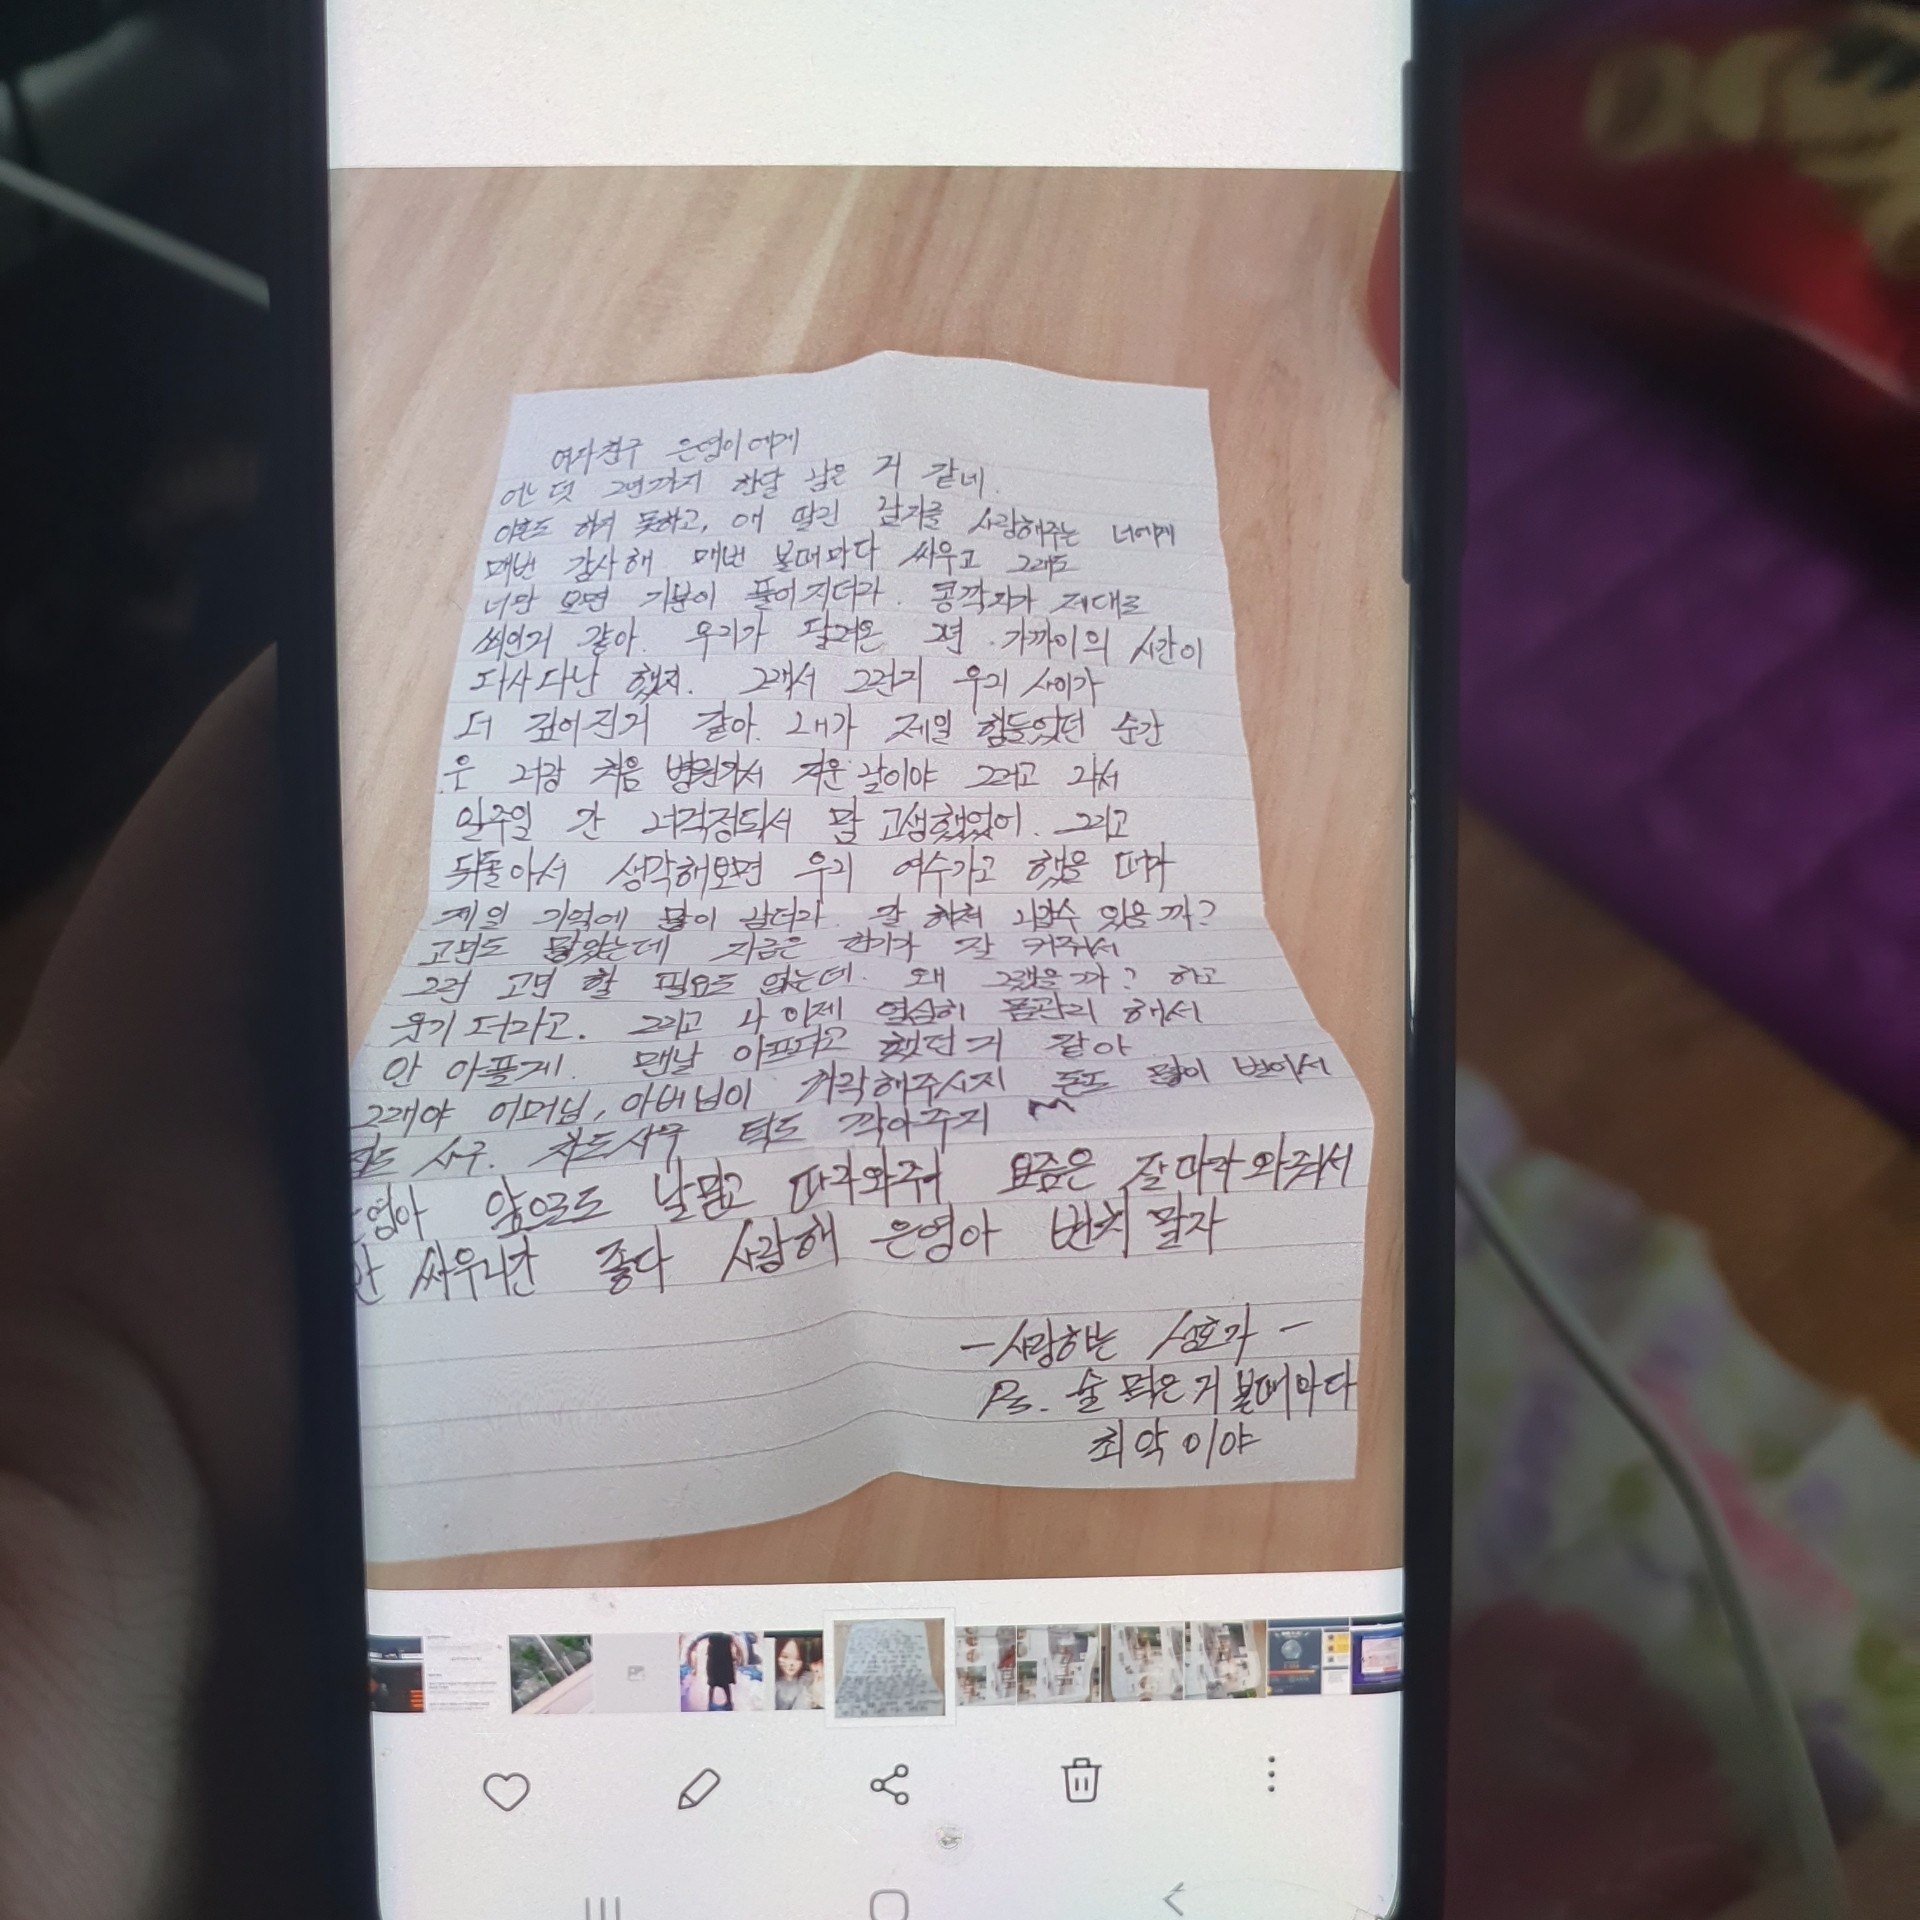 여자친구 은영이에게
어느덧 2년까지 한달 남은 거 같네.
이혼도 하지 못하고, 애 딸린 남자를 사랑해주는 너에게
매번 감사해 매번 볼때마다 싸우고 그래도
너만 보면 기분이 풀어지더라. 콩깍지가 제대로
씌인거 같아. 우리가 달려온 2년 가까이의 시간이
다사다난 했지. 그래서 그런지 우리 사이가
더 깊어진거 같아. 내가 제일 힘들었던 순간
은 너랑 처음 병원가서 지운날이야 그러고 나서
일주일 간 너걱정되서 맘 고생했었어. 그리고
뒤돌아서 생각해보면 우리 여수가고 했을 때가
제일 기억에 많이 남더라. 잘 해쳐 나갈수 있을까?
고민도 많았는데 지금은 잘 커줘서
그런 고민 할 필요도 없는데. 왜 그랬을까? 하고
웃기더라고. 그리고 나 이제 열심히 몸관리 해서
안 아플게. 맨날 아프다고 했던거 같아
그래야 어머님, 아버님이 허락해주시지 돈도 많이 벌어서
사구. 차도사구 턱도 깍아주지
영아 앞으로도 날믿고 따라와줘 요즘은 잘따라와줘서
안 싸우니간 좋다 사랑해 은영아 변치말자
-사랑하는 성호가-
Ps. 술 먹은거 볼때마다
최악이야